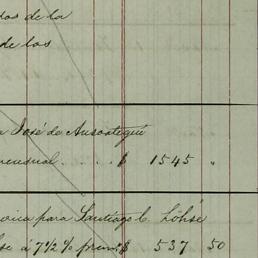 de la
de los
José de Ansoategui
mensual . . . . $ 1545 "
para Santiago C. Löhse
á 7 1/2 % prem. $ 537 50